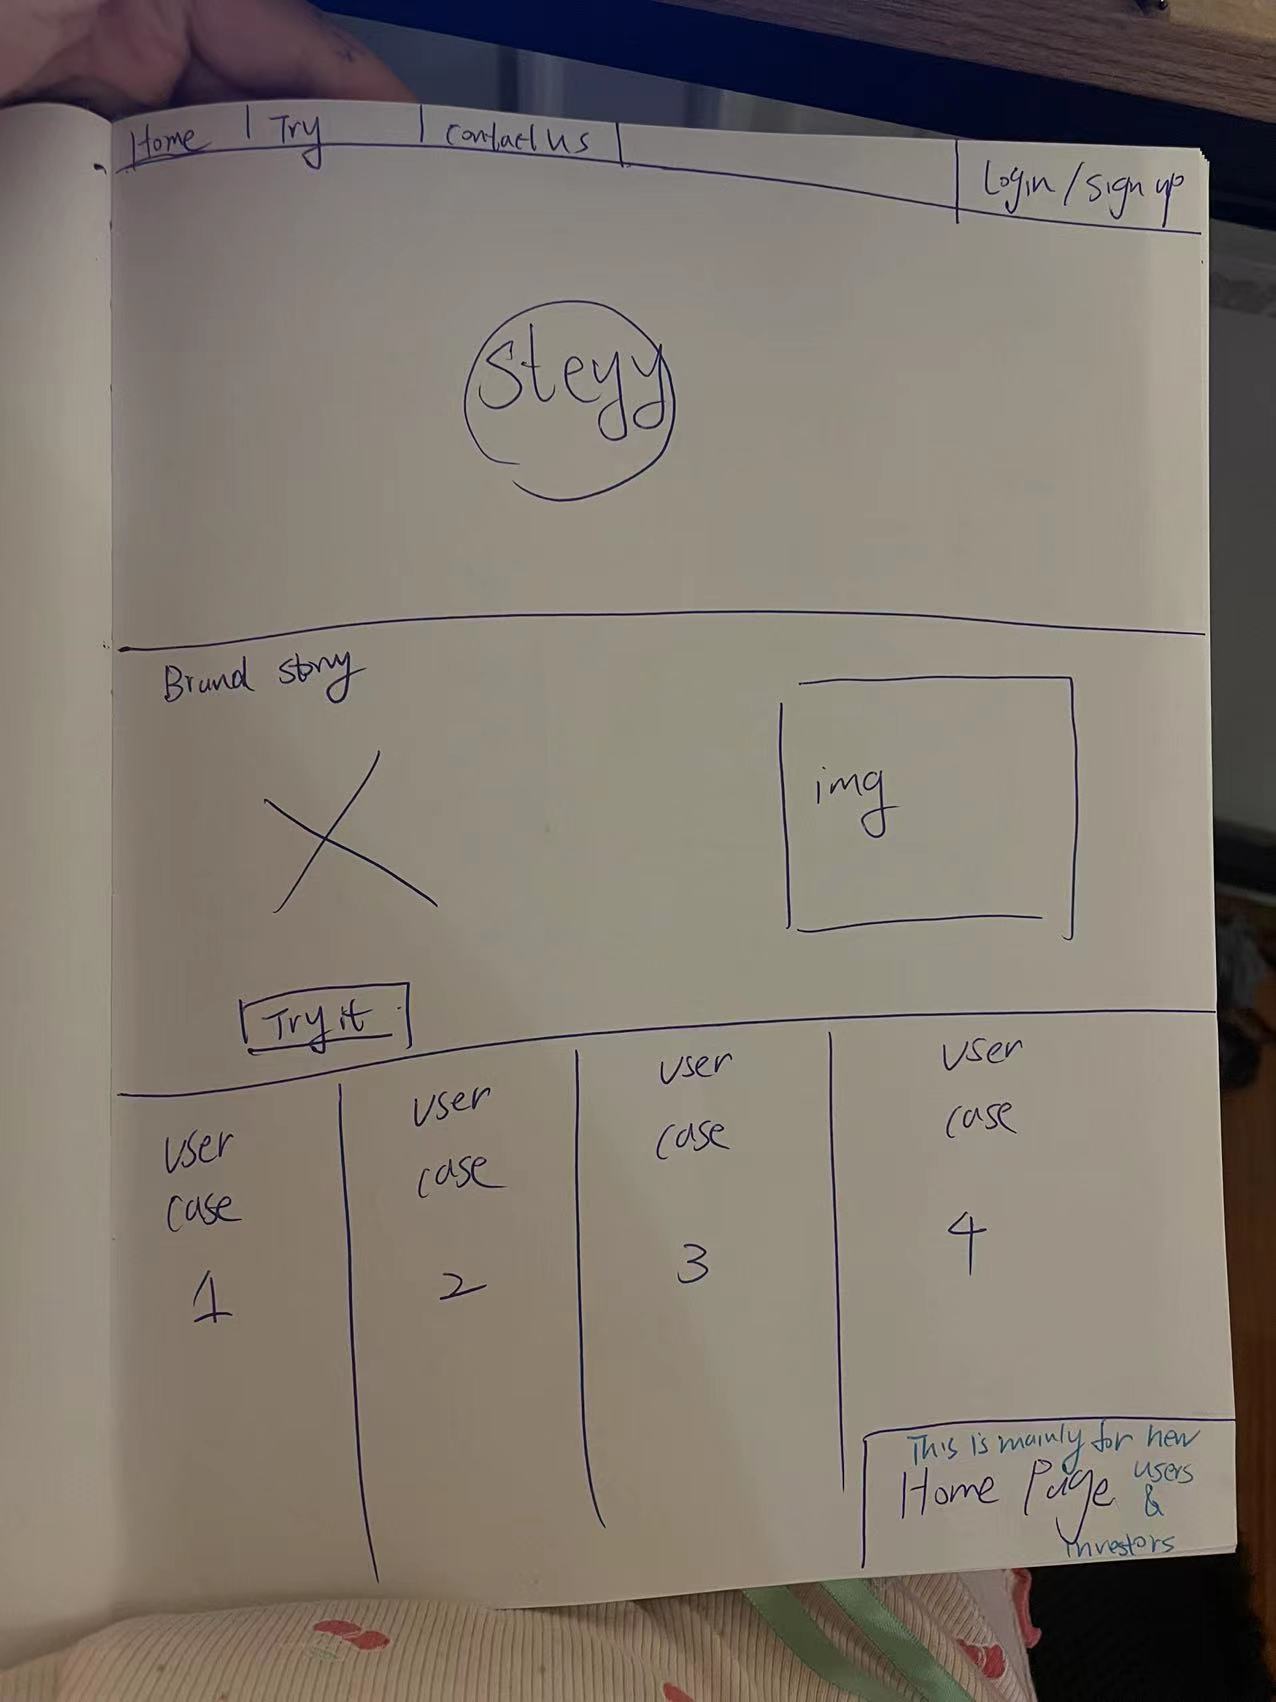 Home | Try | Contact Us | Login / Sign up
Steyy
Brand story
img
Try it
User
case
1
User
case
2
User
case
3
User
case
4
This is mainly for new
users
&
investors
Home Page